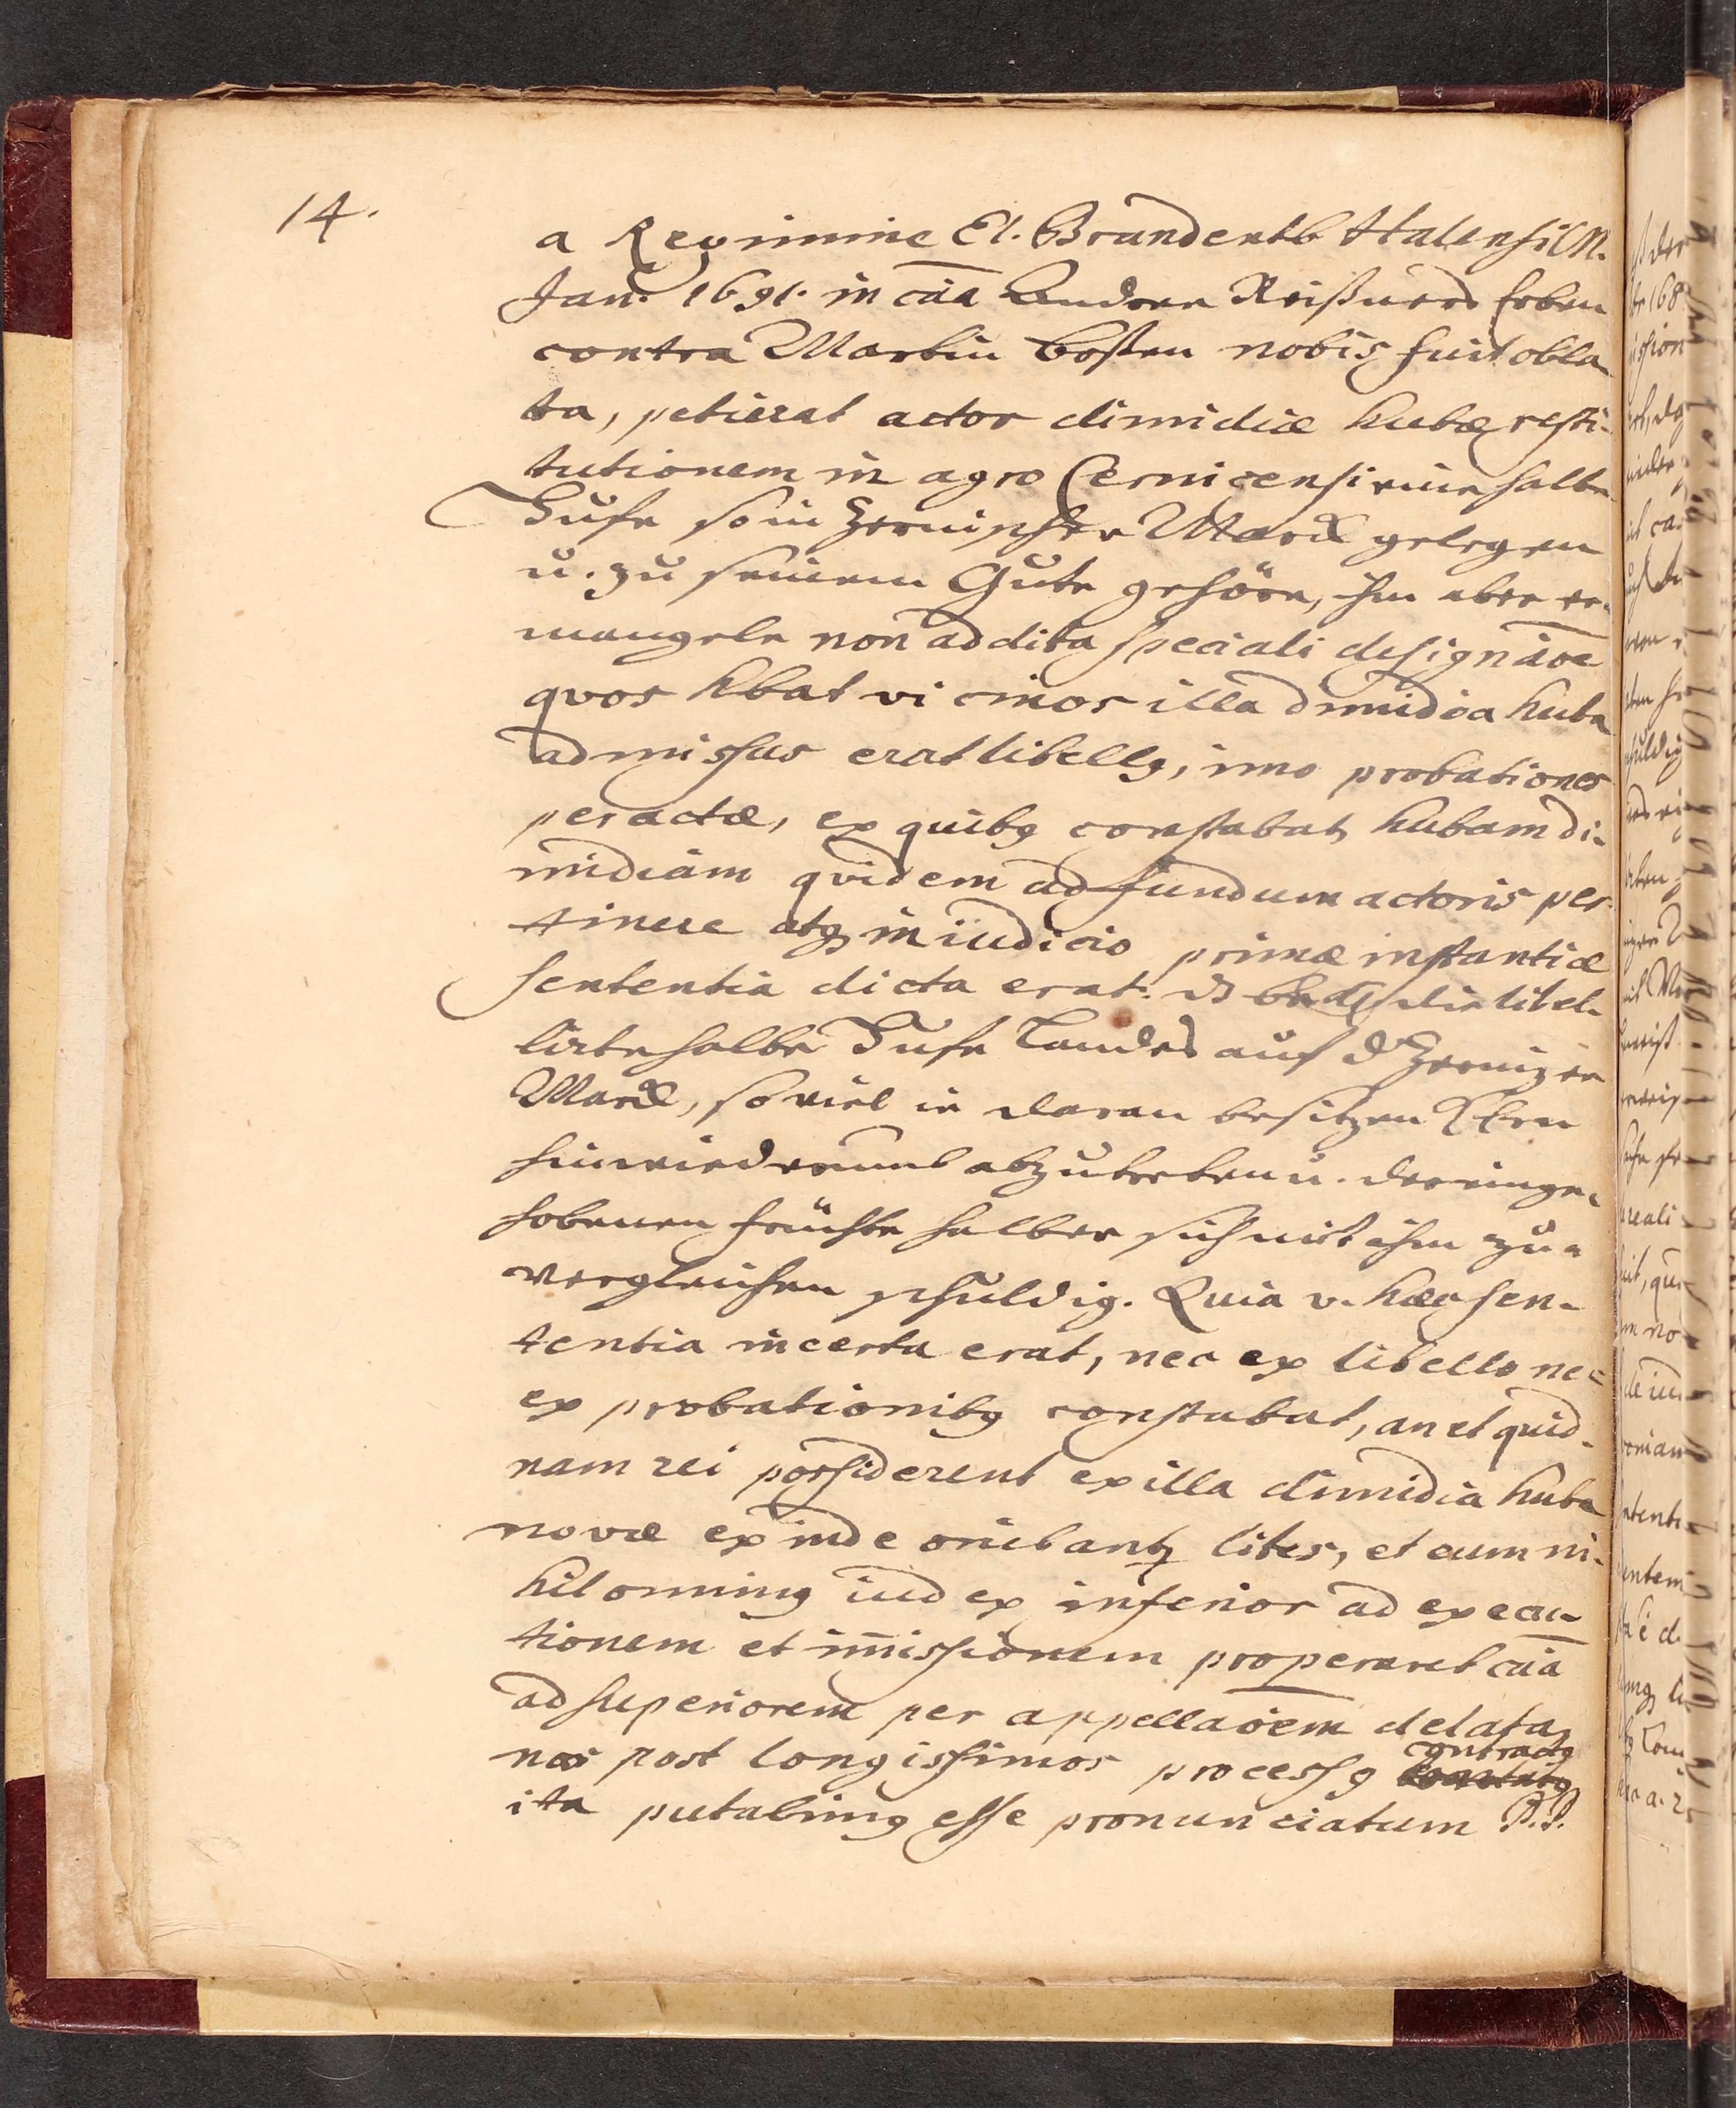 14.
a Regimine El. Brandenb Halensi M.
Jan. 1691. in cāā Andreæ Reißners Erben
contra Martin Bosten nobis fuit obla-
ta, petierat actor dimidiæ hubæ resti-
tutionem in agro Cernicensi eine halbe
Hufe so in Zernischer Marck gelegen
u. zu seinem Gute gehöre, ihm aber er-
mangele non addita speciali designāoe
qvos hbat vicinos illa dimidia huba
admissus erat libellꝰ, imo probationes
peractæ, ex quibꝰ constabat, hubam di-
midiam qvidem ad fundum actoris per-
tinere atqꝫ in iudicio primæ instantiæ
sententia dicta erat: die libel-
lirte halbe Hufe Landes auf d Zernizer
Marck, so viel ie daran besitzen
hinwiederumb abzutreten u. der einge-
hobenen früchte halber sich mit ihm zu
vergleichen schuldig. Quia v. hæc sen-
tentia incerta erat, nec ex libello nec
ex probationibꝰ constabat, an et quid-
nam rei possiderent ex illa dimidia huba
novæ exinde oriebantꝛ lites, et cum ni-
hilominꝰ iudex inferior ad execu-
tionem et im̄issionem properaret cāā
ad superiorem per appellāoem delata,
nos post longissimos processꝰ contractꝰ
ita putabimꝰ esse pronunciatum P.P.